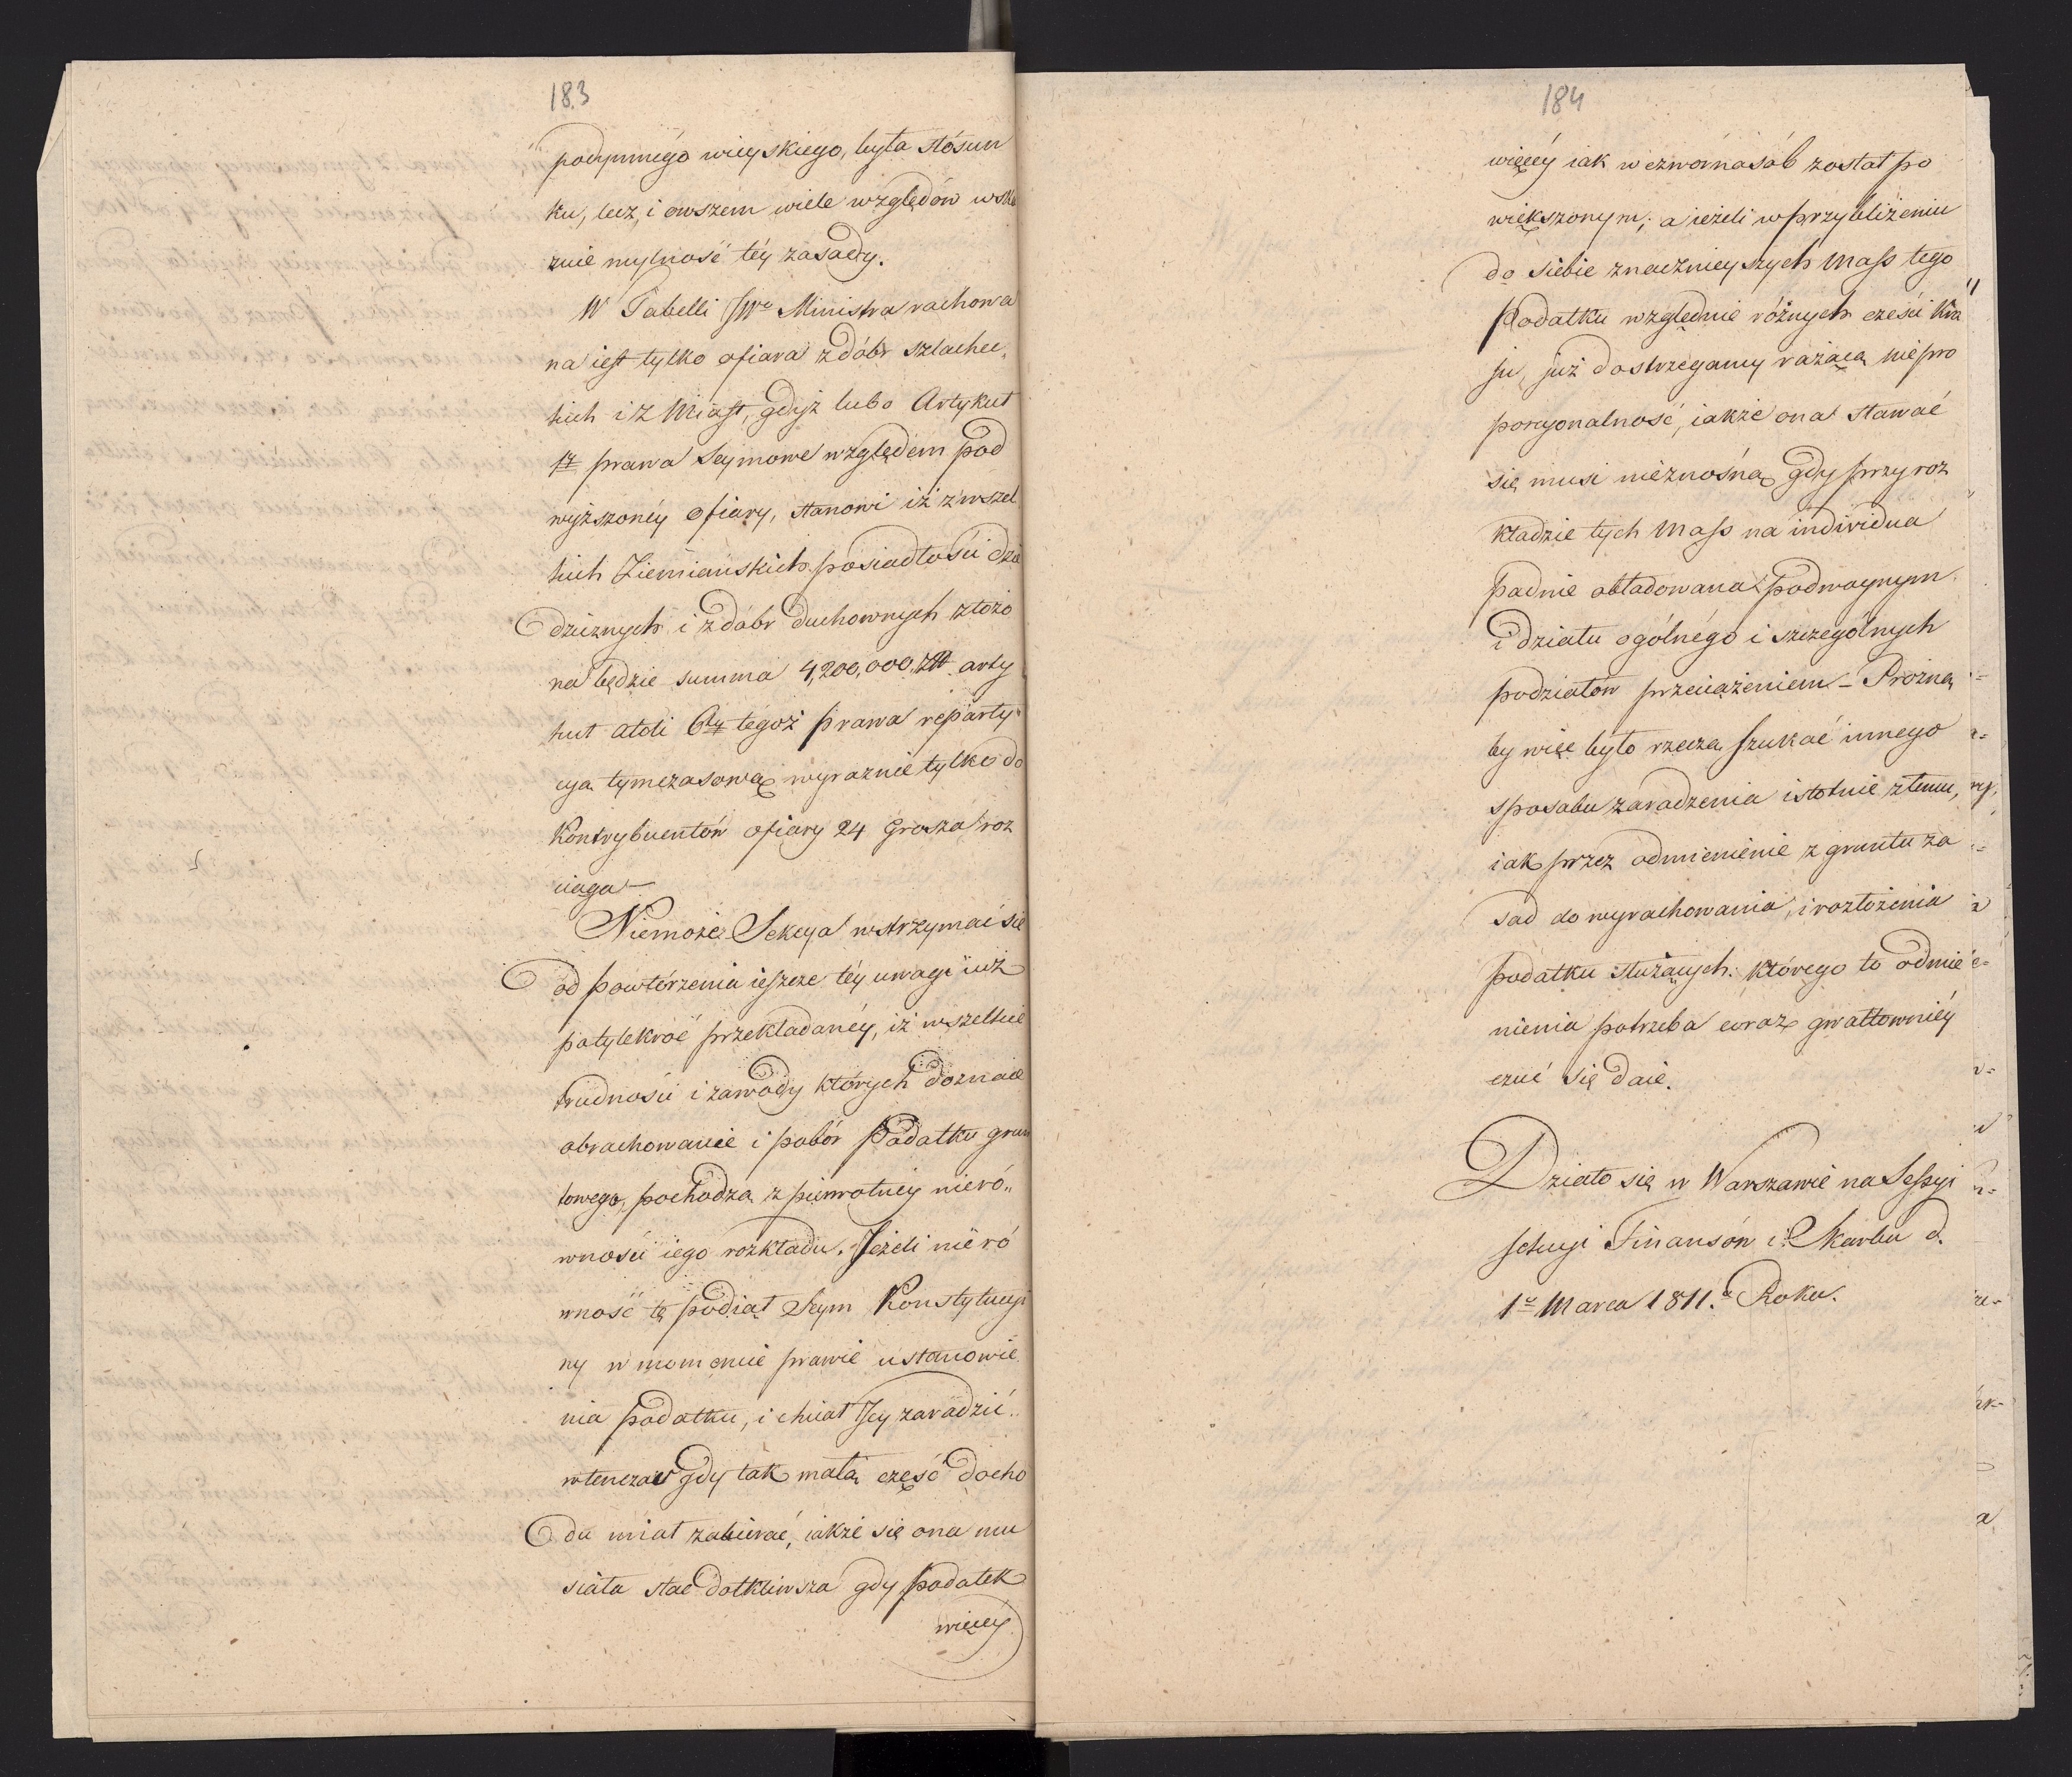 183
podymnégo wieyskiego, była stósun
ku, lecz, i owszem wiele względów wska
zuie mylność téy zasady.
W Tabelli JWo Ministra rachowa
na iest tylko ofiara z dóbr szlachec„
kich i z Miast, gdyż lubo Artykuł
17 prawa Seymowe względem pod
wyższonéy ofiary, stanowi iż z wszel
kich Ziemiańskich posiadłości dzie
dzicznych i z dóbr duchownych złożo
na będzie summa 4,200,000 Złł arty
kuł atoli 6ty tegoż prawa reparty„
cyą tymczasową wyraznie tylko do
Kontrybuentów ofiary 24 Grosza roz
ciąga —
Niemoże Sekcya wstrzymać się
od powtórzenia ieszcze téy uwagi iuż
potylekroć przekładanéy, iż wszelkie
trudności i zawody których doznaie
obrachowanie i pobór Podatku grun
towego, pochodzą z pierwotnéy nieró„
wności iego rozkładu. Jeżeli nieró
wność tę podiął Seym Konstytucyi
ny w momencie prawie ustanowie
nia podatku, i chciał Jey zaradzić.
wtenczas gdy tak małą część docho
du miał zabierać, iakże się ona mu
siała stać dotkliwsza gdy podatek
więcéy
184
więcéy iak w czwórnasób został po
większonym; a ieżeli w przybliżeniu
do siebie znacznieyszych Mass tego
Podatku względnie różnych części Kra
ju, już dostrzegamy rażącą niepro
porcyonalność, iakże ona stawać
się musi nieznośną gdy przy roz
kładzie tych Mass na individua
padnie obładowana podwoynym
i działu ogólnégo i szczególnych
podziałów przeciążeniem — Prożną
by więc było rzeczą szukać innego
sposobu zaradzenia istotnie złemu,
iak przez odmienienie z gruntu za
sad do wyrachowania i rozłożenia
podatku służących. którego to odmie
nienia potrzeba coraz gwałtownièy
czuć się daie.
Działo się w Warszawie na Sessyi
sekcyi Finansów i Skarbu d.
1o Marca 1811.o Roku.